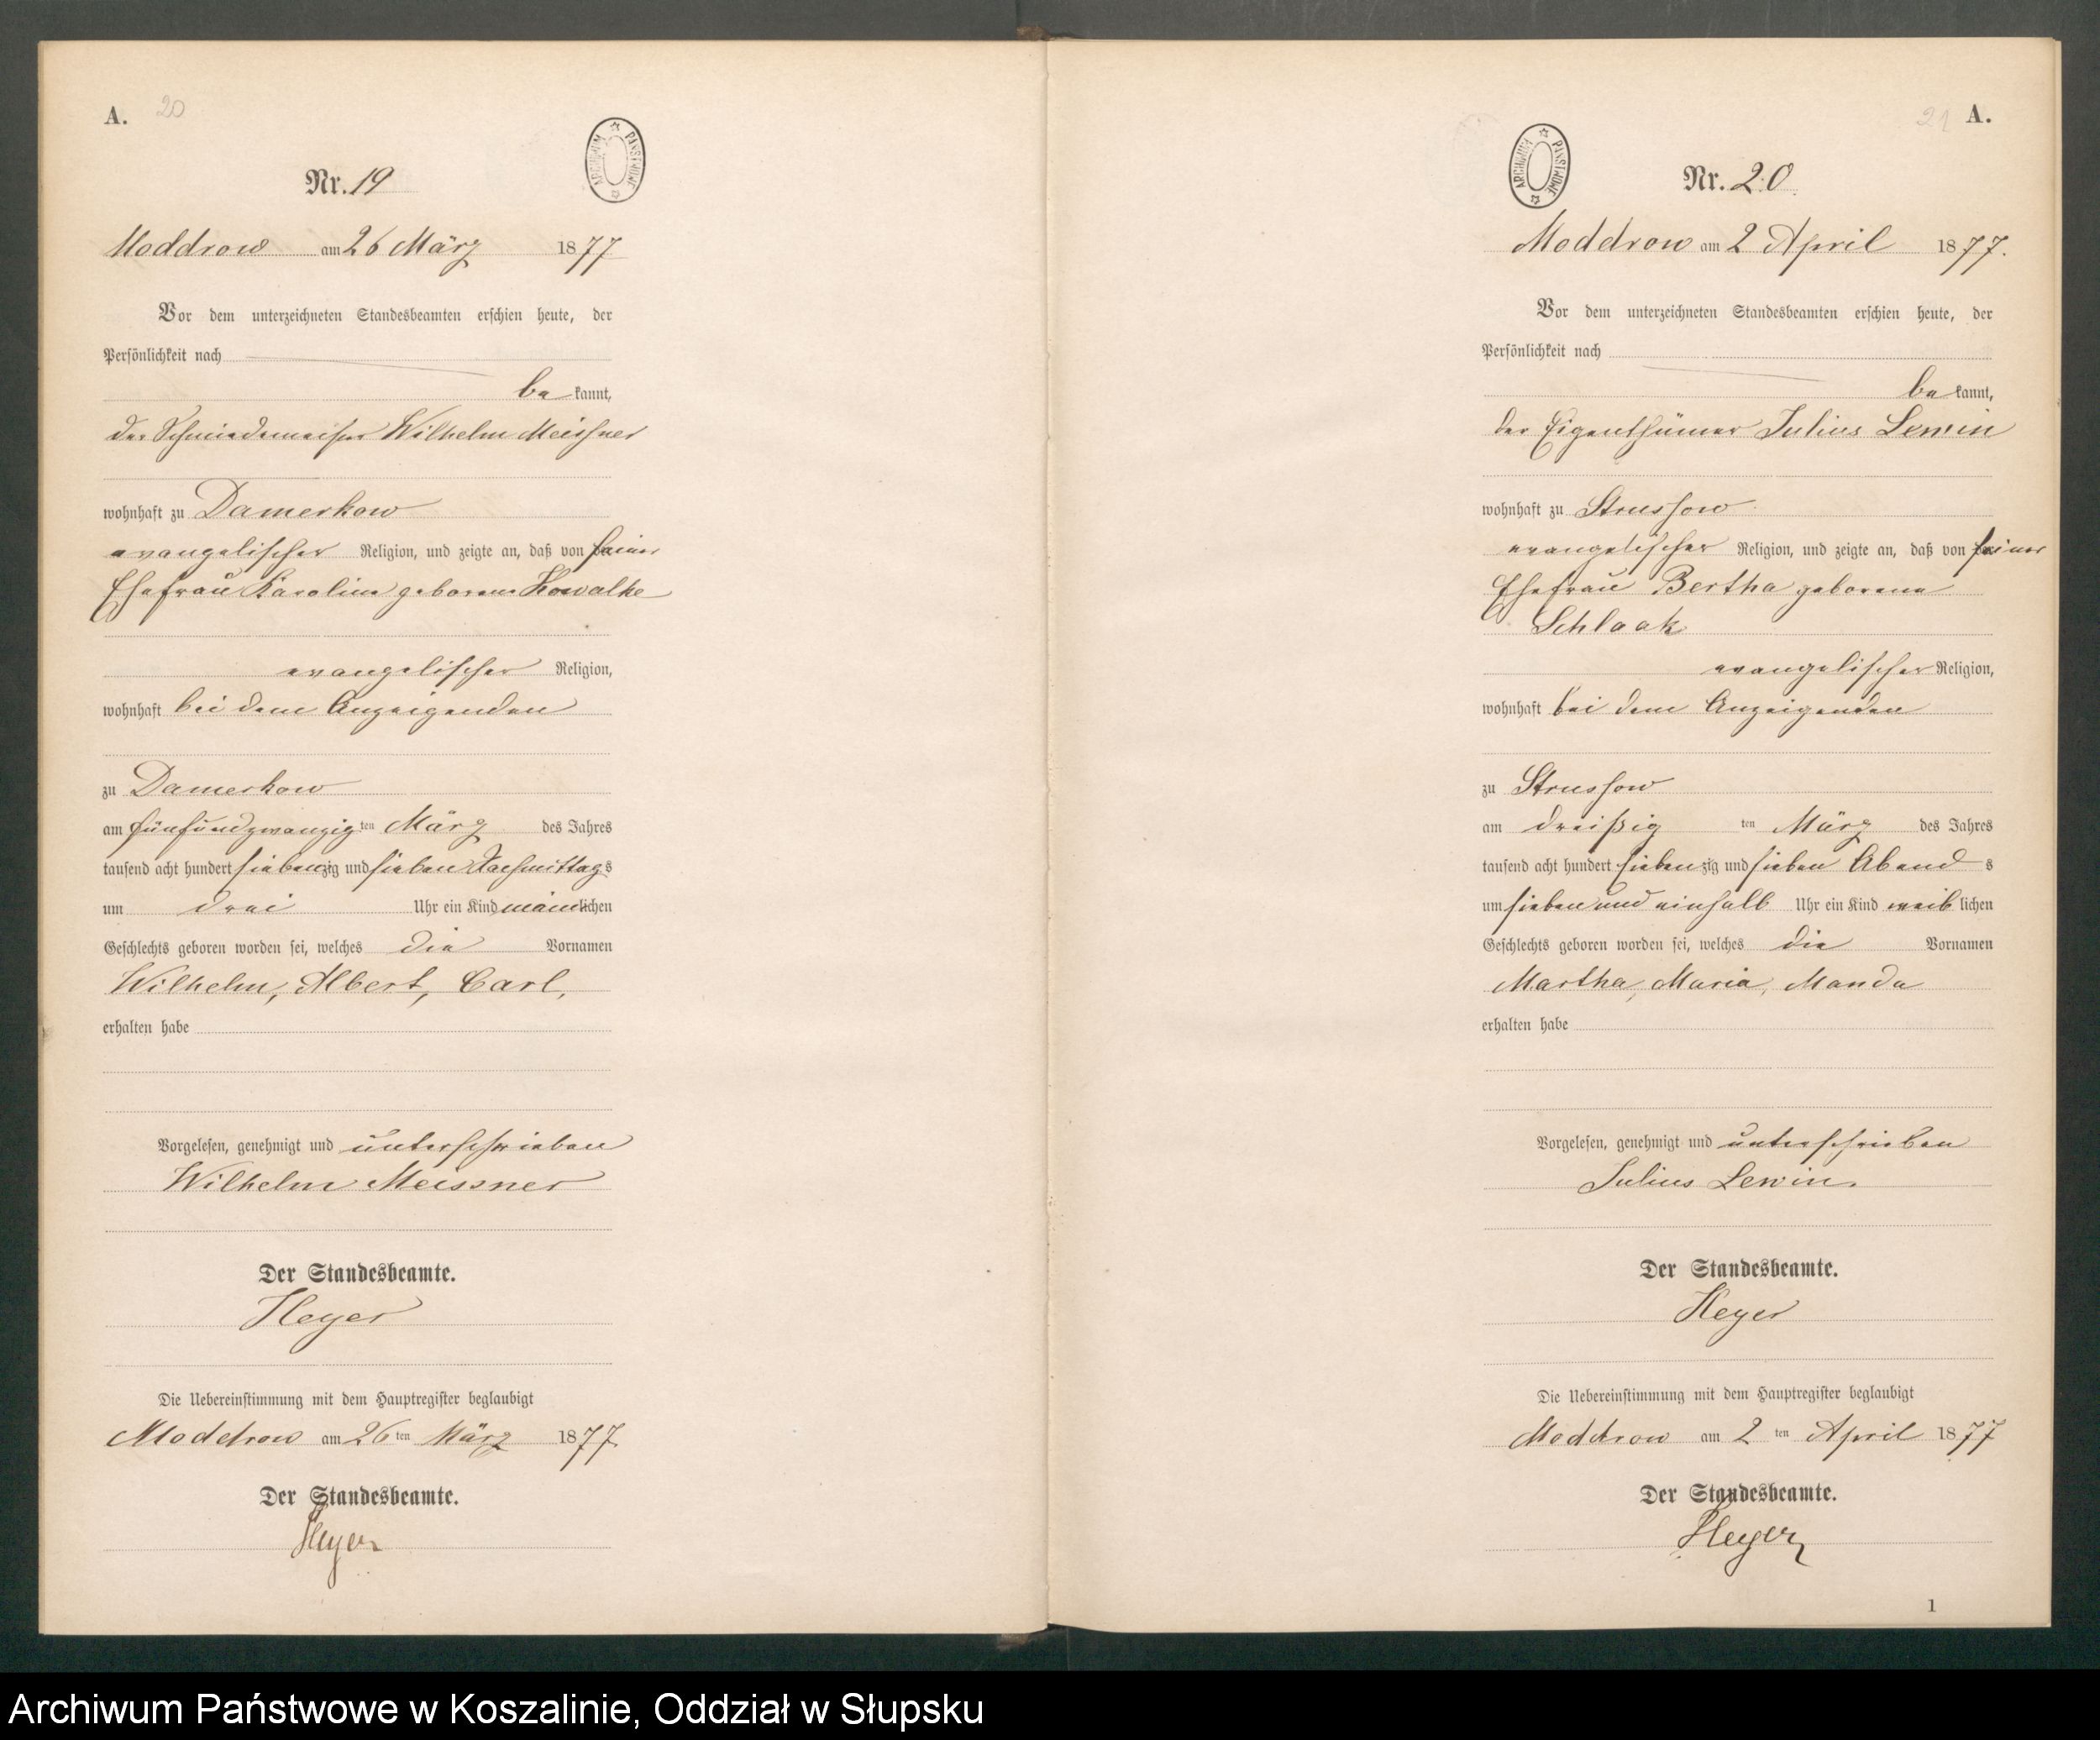 A. 20
ARCHIWUM PAŃSTWOWE
Nr. 19
Moddrow am 26 März 1877
Vor dem unterzeichneten Standesbeamten erschien heute, der
Persönlichkeit nach
be kannt,
der Schmiedemeister Wilhelm Meissner
wohnhaft zu Damerkow
evangelischer Religion, und zeigte an, daß von seiner
Ehefrau Karoline geborene Kowalke
evangelischer Religion,
wohnhaft bei dem Anzeigenden
zu Damerkow
am fünfundzwanzig ten März des Jahres
tausend acht hundert siebenzig und sieben Nachmittags
um drei Uhr ein Kind männlichen
Geschlechts geboren worden sei, welches die Vornamen
Wilhelm, Albert, Carl,
erhalten habe
Vorgelesen, genehmigt und unterschrieben
Wilhelm Meissner
Der Standesbeamte.
Heyer
Die Uebereinstimmung mit dem Hauptregister beglaubigt
Moddrow am 26 ten März 1877
Der Standesbeamte.
Heyer
21 A.
ARCHIWUM PAŃSTWOWE
Nr. 20
Moddrow am 2 April 1877.
Vor dem unterzeichneten Standesbeamten erschien heute, der
Persönlichkeit nach
be kannt,
der Eigenthümer Julius Lewin
wohnhaft zu Strussow
evangelischer Religion, und zeigte an, daß von seiner
Ehefrau Bertha geborene
Schlaak
evangelischer Religion,
wohnhaft bei dem Anzeigenden
zu Strussow
am dreißig ten März des Jahres
tausend acht hundert siebenzig und sieben Abends
um sieben und einhalb Uhr ein Kind weiblichen
Geschlechts geboren worden sei, welches die Vornamen
Martha, Maria, Manda
erhalten habe
Vorgelesen, genehmigt und unterschrieben
Julius Lewin.
Der Standesbeamte.
Heyer
Die Uebereinstimmung mit dem Hauptregister beglaubigt
Moddrow am 2 ten April 1877
Der Standesbeamte.
Heyer
1
Archiwum Państwowe w Koszalinie, Oddział w Słupsku